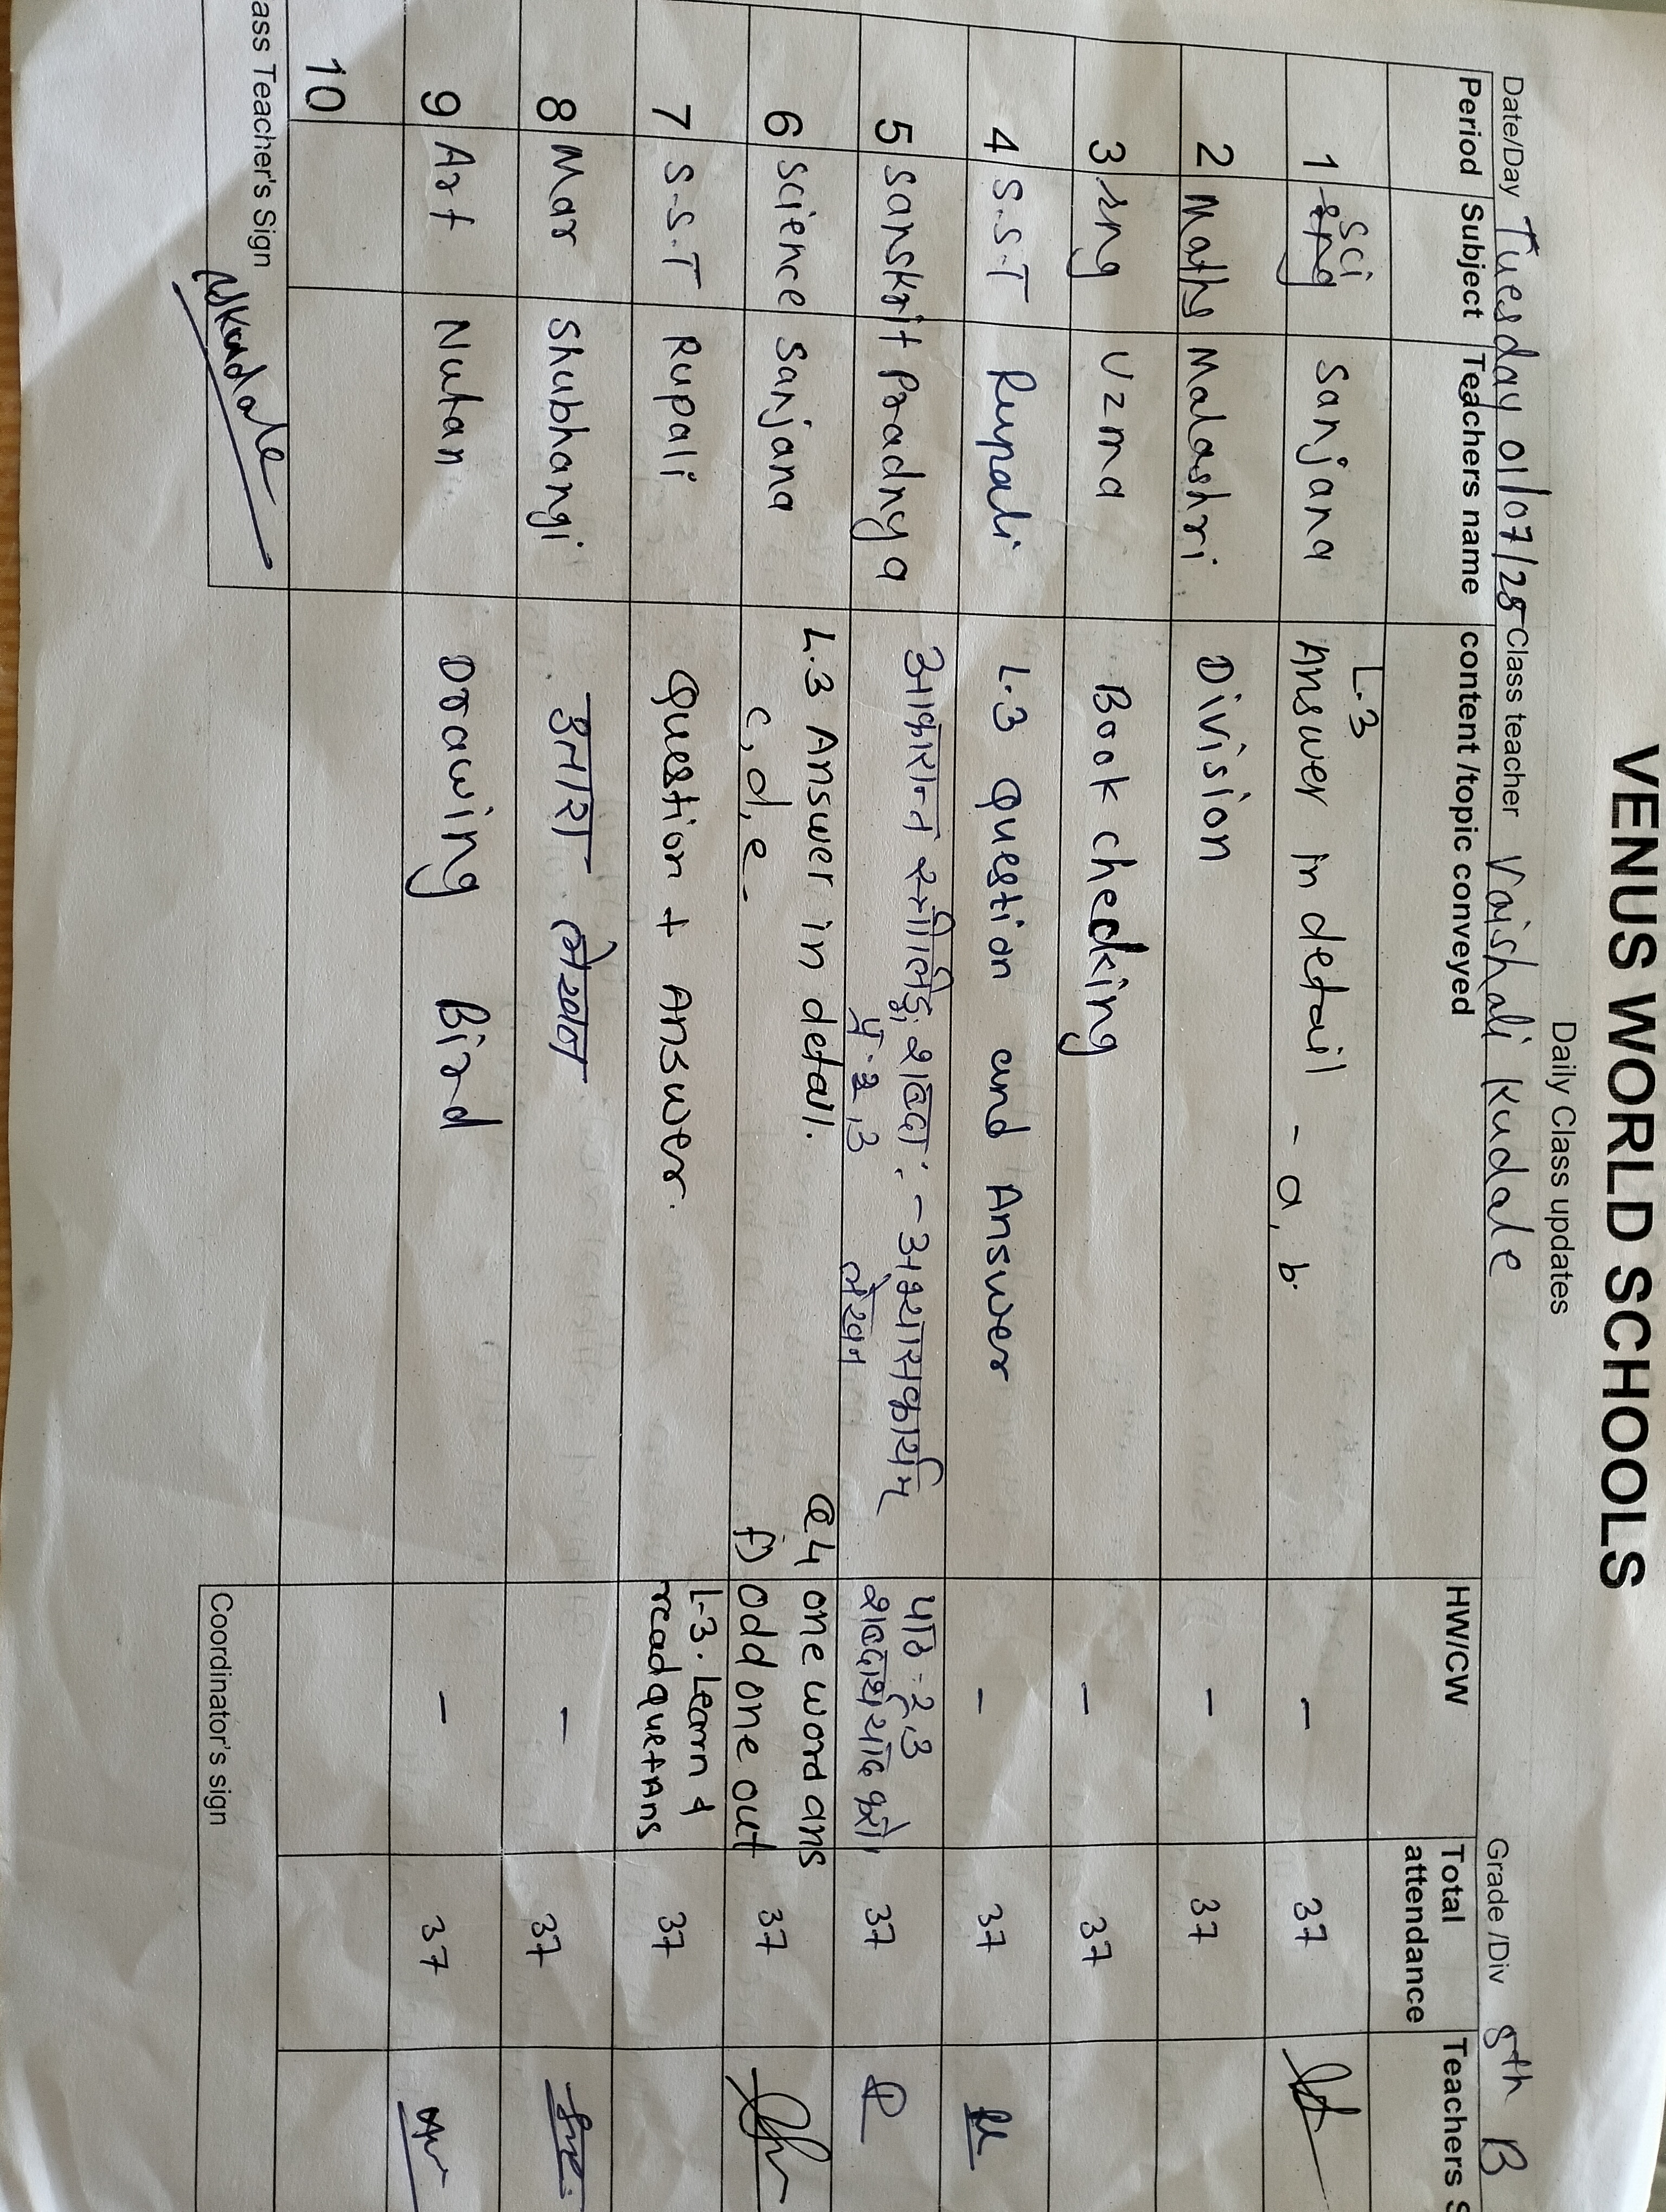 VENUS WORLD SCHOOLS
Daily Class updates
Date/Day Tuesday 01/07/25 Class teacher Vaishali Kudale Grade /Div 8th B
Period Subject Teachers name content /topic conveyed HW/CW Total attendance Teachers S
1 Sci Sanjana L.3 Answer in detail - a, b. - 37
2 Maths Malashri Division - 37
3 Eng Uzma Book checking - 37
4 S.S.T Rupali L.3 Question and Answer - 37
5 Sanskrit Pradnya आकारान्त स्त्रीलिङ्ग शब्दाः - अभ्यासकार्यम् पाठ - 2,3 37
पृ. 2,3 लेखन शब्दार्थ याद करो।
6 Science Sanjana L.3 Answer in detail. Q4 one word ans 37
c, d, e. f) odd one out
7 S.S.T Rupali Question + Answer. L-3. Learn & 37
read que+Ans
8 Mar Shubhangi उतारा लेखन - 37
9 Art Nutan Drawing Bird - 37
10
ass Teacher's Sign VKudale Coordinator's sign